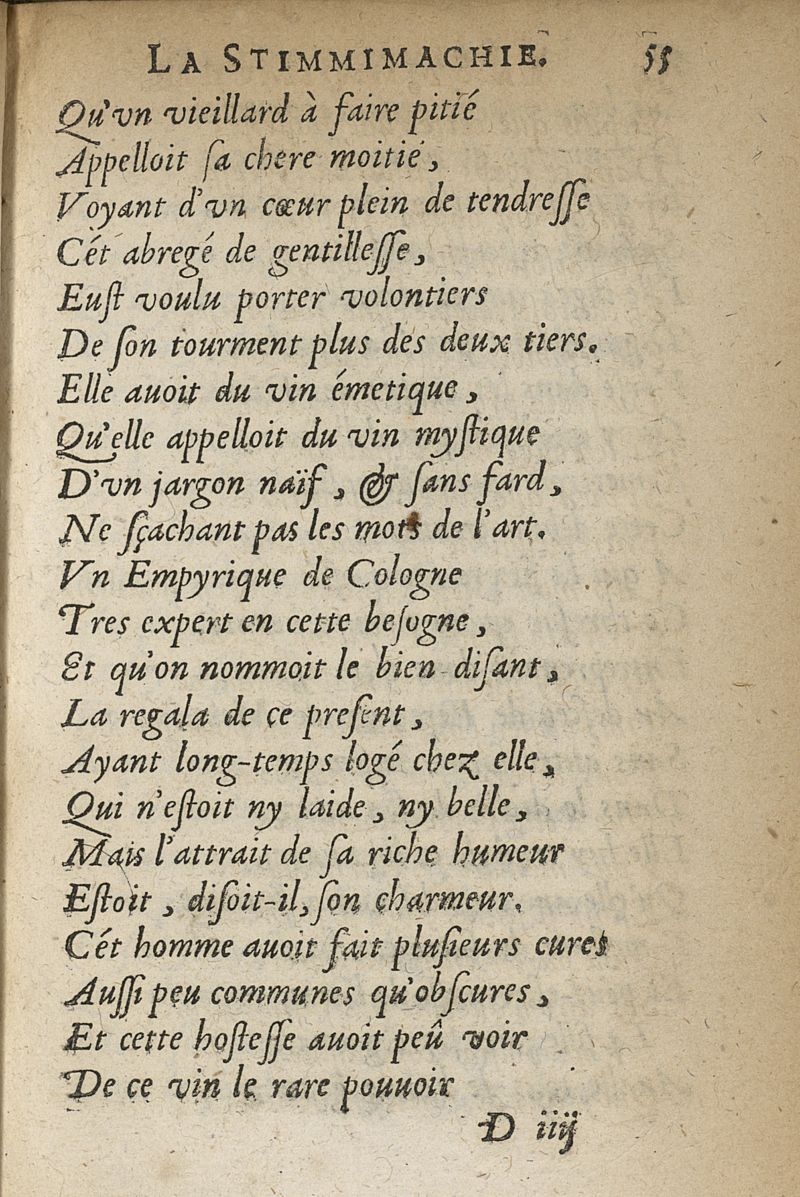 LA STIMMIMACHIE. 55
Qu'vn vieillard à faire pitié
Appelloit ſa chere moitié,
Voyant d'vn cœur plein de tendreſſe
Cét abregé de gentilleſſe,
Euſt voulu porter volontiers
De ſon tourment plus des deux tiers.
Elle auoit du vin émetique,
Qu'elle appelloit du vin myſtique
D'vn jargon naïf, & ſans fard,
Ne ſçachant pas les mots de l'art.
Vn Empyrique de Cologne
Tres expert en cette beſogne,
Et qu'on nommoit le bien diſant,
La regala de ce preſent,
Ayant long-temps logé chez elle,
Qui n'eſtoit ny laide, ny belle,
Mais l'attrait de ſa riche humeur
Eſtoit, diſoit-il, ſon charmeur.
Cét homme auoit fait pluſieurs cures
Auſſi peu communes qu'obſcures,
Et cette hoſteſſe auoit peû voir
De ce vin le rare pouuoir
D iiij